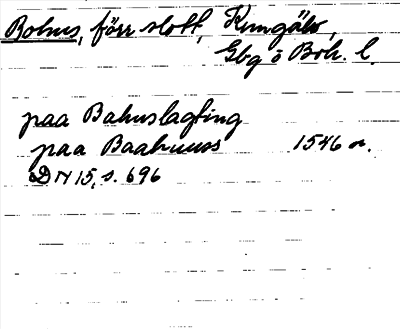 Bohus, förr slott, Kungälv,
Gbg o Boh. l.
paa Bahuslagting
paa Baahuuss 1546 n.
DN 15, s. 696